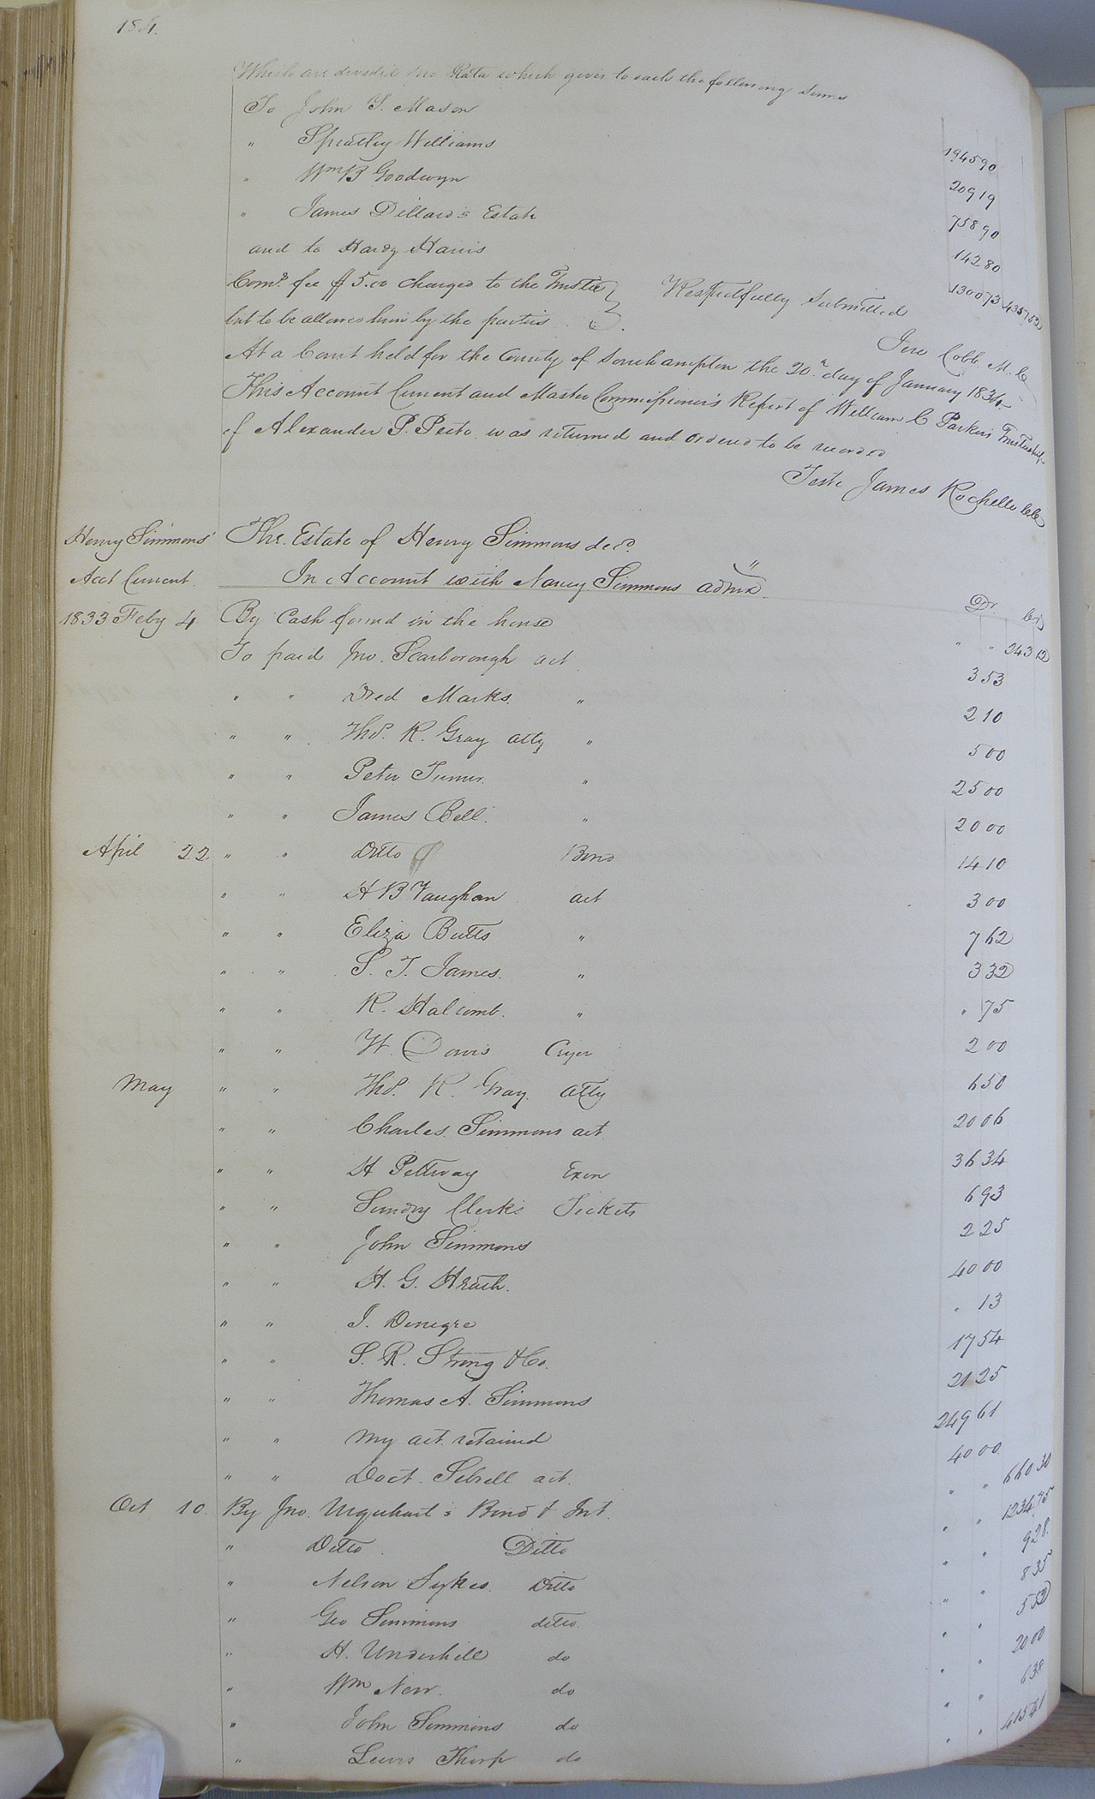 Which are divided pro Rata which gives to each the following sums
To John Y. Mason 1945 90
" Spratley Williams 209 19
" Wm B Goodwyn 758 90
" James Dillard's Estate 142 80
and to Hardy Harris 1300 73 4357 52
Comr. fee $5.00 charged to the Trustee
but to be allowed him by the parties Respectfully Submitted
Jere Cobb M. C
At a Court held for the County of Southampton the 20th day of January 1834
This Account Current and Master Commissioner's Report of William C Parkers Trusteeship
of Alexander P. Peete was returned and ordered to be recorded
Teste James Rochelle Clk
Henry Simmons' The Estate of Henry Simmons decd.
Acct Current In Account with Nancy Simmons admx. Dr Cr
1833 Feby 4 By Cash found in the house " " 243 12
To paid Jno. Scarborough act 3 53
" " Dred Marks " 2 10
" " Thos. R. Gray atty " 5 00
" " Peter Turner " 25 00
" " James Bell " 20 00
April 22 " " Ditto Bond 14 10
" " H B Vaughan act 3 00
" " Eliza Butts " 7 62
" " S. T. James " 3 32
" " R. Halcomb " " 75
" " W. Davis Cryer 2 00
May " " Thos. R. Gray. Atty 6 50
" " Charles Simmons act 20 06
" " H Pettway Exon 36 34
" " Sundry Clerks Tickets 6 93
" " John Simmons 2 25
" " H. G. Heath. 40 00
" " J. Denegre " 13
" " S. R. Strong & Co. 17 54
" " Thomas A. Simmons 21 25
" " my act retained 249 61
" " Doct. Sebrell act. 40 00
Oct 10 By Jno. Urquhart's Bond & Int. " " 660 30
" Ditto Ditto " " 1234 75
" Nelson Sykes Ditto " " 9 28
" Geo Simmons ditto " " 8 35
" H. Underhill do " " 5 52
" Wm New. do " " 20 00
" John Simmons do " " 6 38
" Lewis Thorp do " " 415 61